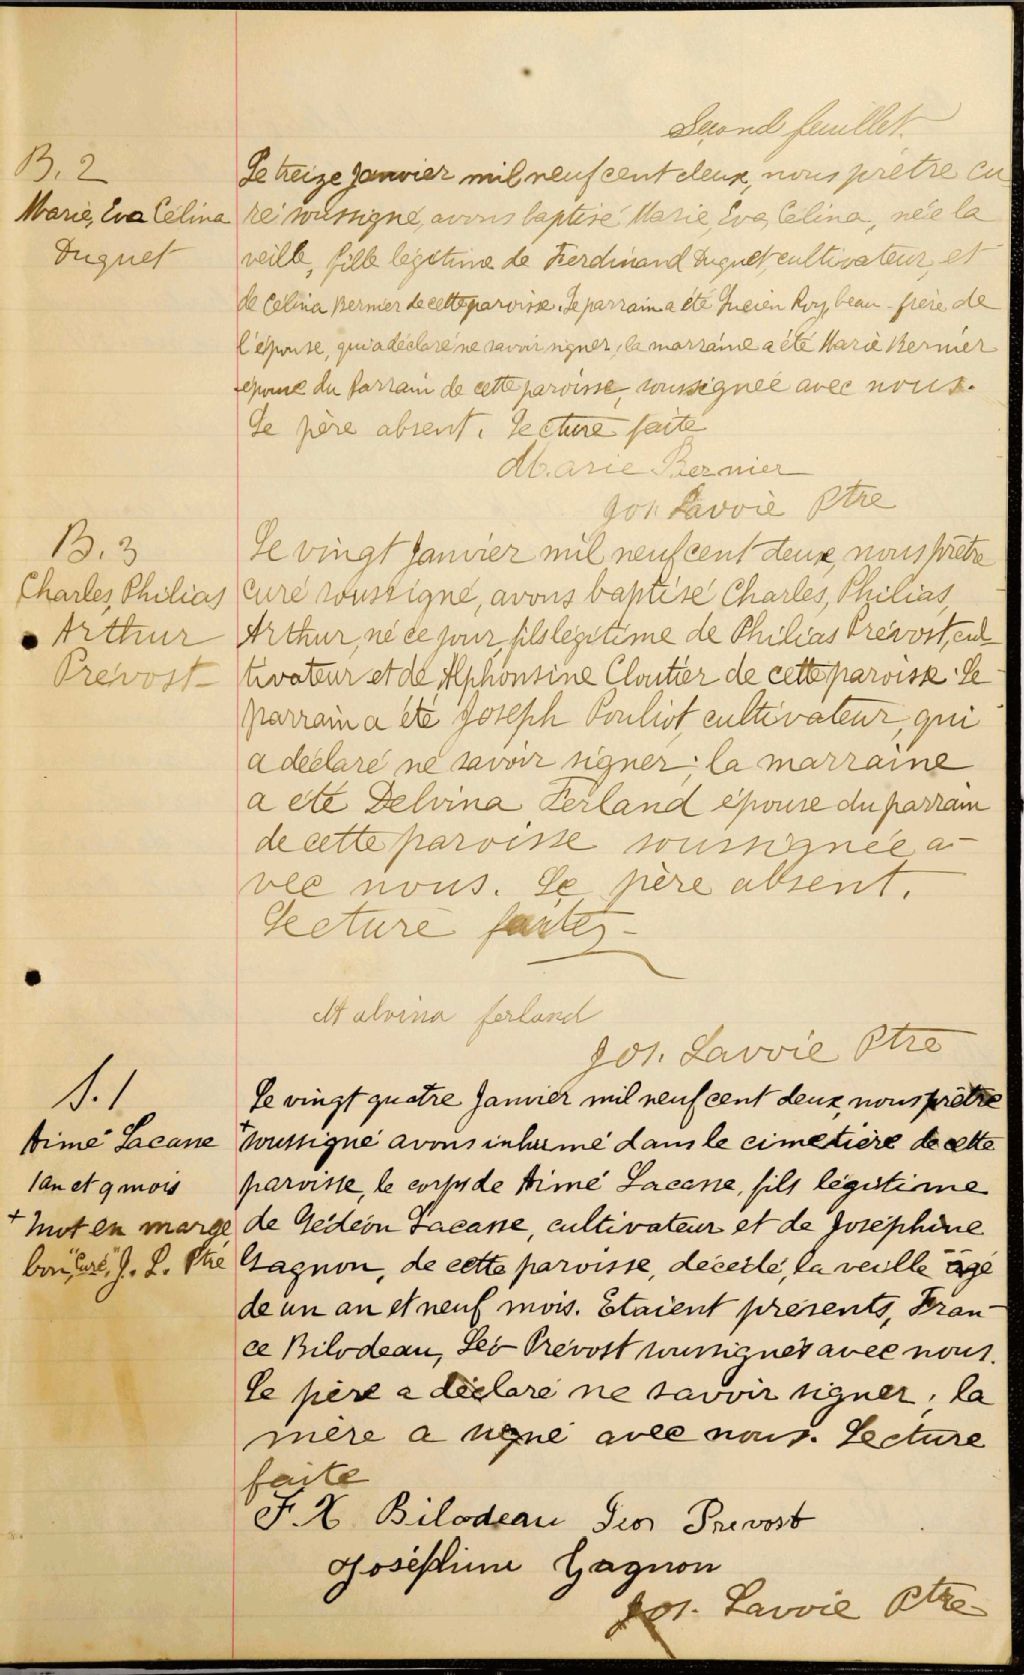 Second feuillet.
B. 2
Marie, Eva Célina
Duguet
Le treize Janvier mil neuf cent deux, nous prêtre cu-
ré soussigné, avons baptisé Marie, Eva, Célina, née la
veille, fille légitime de Ferdinand Duguet, cultivateur, et
de Célina Bernier de cette paroisse. Le parrain a été Lucien Roy, beau-frère de
l'épouse, qui a déclaré ne savoir signer, la marraine a été Marie Bernier
épouse du parrain de cette paroisse, soussignée avec nous.
Le père absent. Lecture faite
Marie Bernier
Jos. Lavoie Ptre
B. 3
Charles, Philias
Arthur
Prévost
Le vingt Janvier mil neuf cent deux, nous prêtre
curé soussigné, avons baptisé Charles, Philias,
Arthur, né ce jour, fils légitime de Philias Prévost, cul-
tivateur et de Alphonsine Cloutier de cette paroisse. Le
parrain a été Joseph Pouliot, cultivateur, qui
a déclaré ne savoir signer; la marraine
a été Delvina Ferland épouse du parrain
de cette paroisse soussignée a-
vec nous. Le père absent.
Lecture faite
Malvina ferland
Jos. Lavoie Ptre
S. 1
Aimé Lacasse
1 an et 9 mois
+ mot en marge
bon, "Curé," J. L. Ptre
Le vingt quatre Janvier mil neuf cent deux, nous prêtre
+ soussigné avons inhumé dans le cimetière de cette
paroisse, le corps de Aimé Lacasse, fils légitime
de Gédéon Lacasse, cultivateur et de Joséphine
Gagnon, de cette paroisse, décédé, la veille âgé
de un an et neuf mois. Etaient présents, Fran-
ce Bilodeau, Léo Prévost soussignés avec nous.
Le père a déclaré ne savoir signer; la
mère a signé avec nous. Lecture
faite
F. X Bilodeau Prevost
Joséphine Gagnon
Jos. Lavoie Ptre